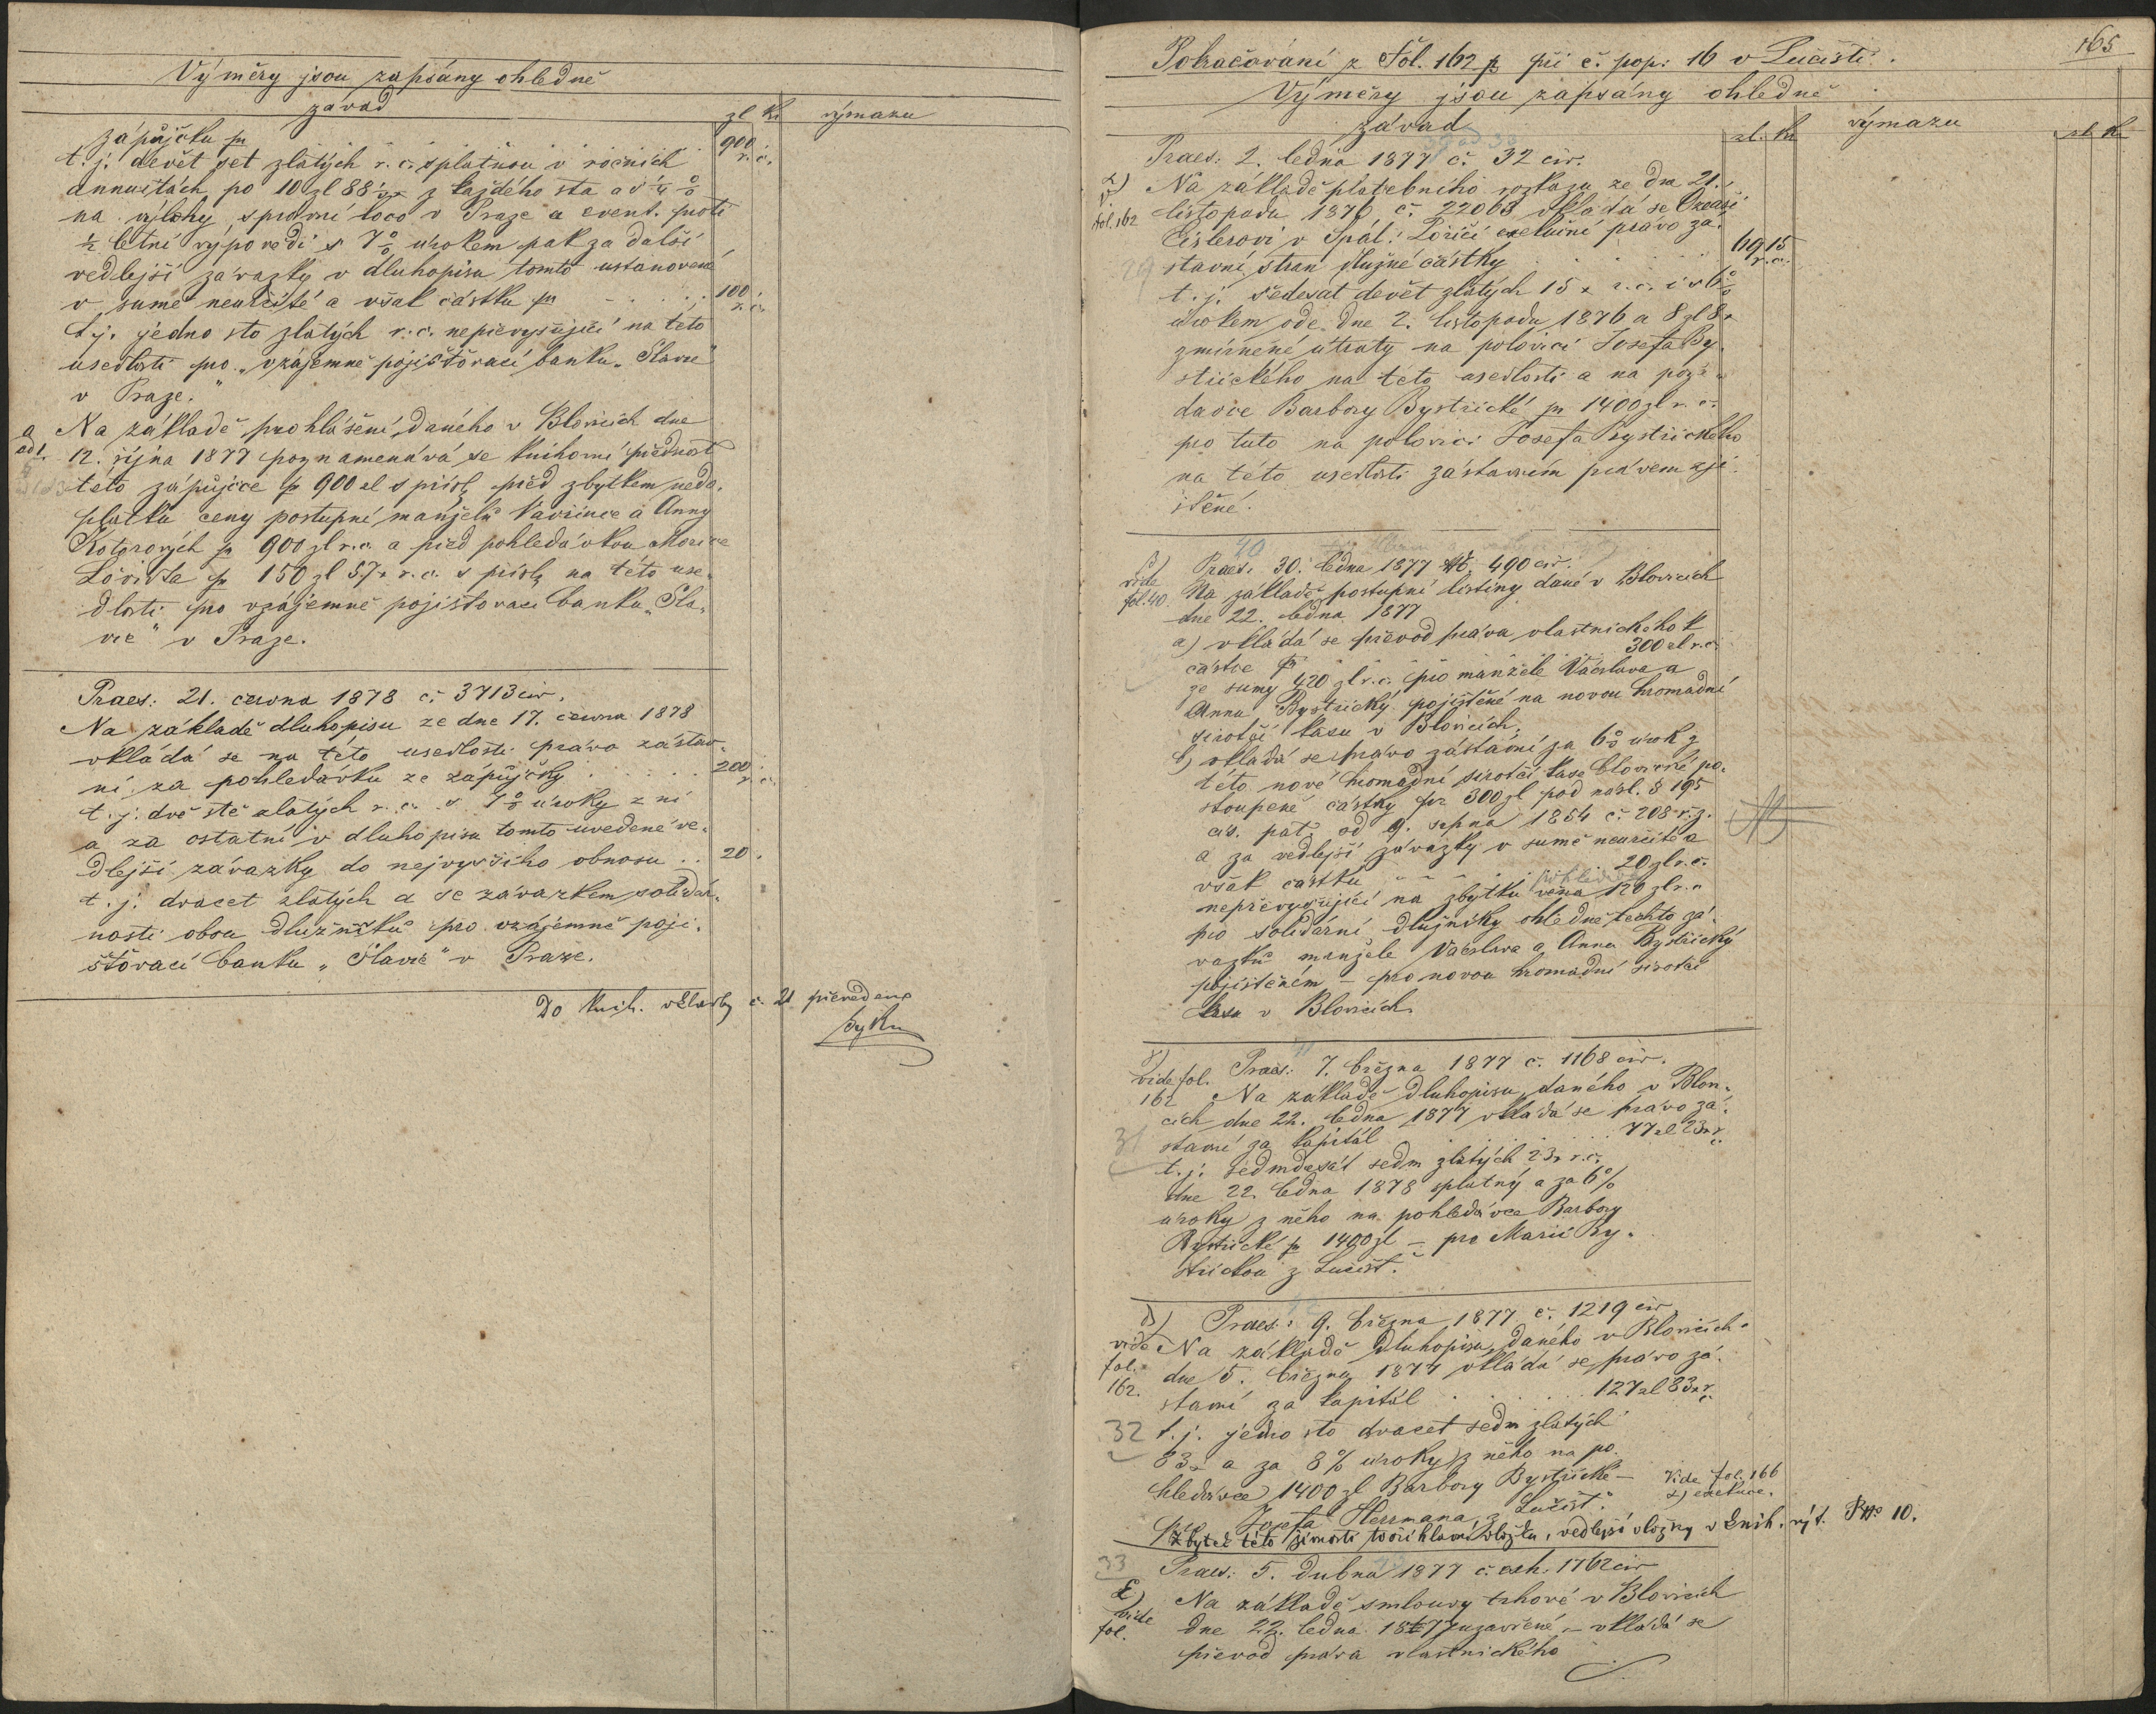 Výměry jsou zapsány ohledně
závad
zl kr výmazu
zápůjčku pr 900
t. j. devět set zlatých r. č. splatnou v ročních r. č.
annuitách po 10 zl 88 z každého sta a 1/4 %
na výlohy správní loco v Praze a event. proti
½ letní výpovědi s 7% úrokem pak za další
vedlejší závazky v dluhopisu tomto ustanovené
v sumě neurčité a však částku pr 100
t. j. jedno sto zlatých r. č. nepřevyšující na této r. č.
usedlosti pro „vzájemně pojišťovací banku „Slavie"
v Praze."
a Na základě prohlášení, daného v Blovicích dne
ad 1. 12. října 1877 poznamenává se knihovní přednost
této zápůjčce pr 900 zl s přísl. před zbytkem nedo-
platku ceny postupní manželů Vavřince a Anny
Kotorových pr 900 zl r. č. a před pohledávkou Morice
Löwita pr 150 zl 57 x r. č. s přísl. na této use-
dlosti pro vzájemně pojišťovací banku „Sla-
vie" v Praze.
Praes: 21. června 1878 č. 3713 civ.
Na základě dluhopisu ze dne 17. června 1878
vkládá se na této usedlosti právo zástav-
ní za pohledávku ze zápůjčky 200
t. j. dvě stě zlatých r. č. s 7% úroky z ní r. č.
a za ostatní v dluhopisu tomto uvedené ve-
dlejší závazky do nejvyššího obnosu . . 20.
t. j. dvacet zlatých a se závazkem solidár-
nosti obou dlužníků pro vzájemně poji-
šťovací banku „Slavie" v Praze.
Do knih. vložky č. 21 převedeno
165
Pokračování z Fol. 162 p při č. pop: 16 v Lučišti.
Výměry jsou zapsány ohledně
závad
zl. kr výmazu zl. kr
Praes: 2. ledna 1877 č. 32 civ.
α) Na základě platebního rozkazu ze dne 21.
listopadu 1876 č. 22063 vkládá se
fol. 162 Eislerovi v Spál: Poříčí exekuční právo zá-
stavní stran dlužné částky 69 15
t. j. šedesát devět zlatých 15 x r. č. i s 6% r. č.
úrokem ode dne 2. listopadu 1876 a 8 zl 8 x
zmírněné útraty na polovici Josefa By-
střického na této usedlosti a na pohle-
dávce Barbory Bystřické pr 1400 zl r. č.
pro tuto na polovici Josefa Bystřického
na této usedlosti zástavním právem zji-
štěné.
40
β) Praes: 30. ledna 1877 č. 490 civ.
vide Na základě postupní listiny dané v Blovicích
fol. 40. dne 22. ledna 1877
a) vkládá se převod práva vlastnického k
částce pr 300 zl r. č.
ze sumy 420 zl r. č. pro manžele Václava a
Annu Bystřický pojištěné na novou hromadní
sirotčí kasu v Blovicích,
b) vkládá se právo zástavní za 6% úrok z
této nové hromadní sirotčí kase blovické po-
stoupené částky pr 300 zl pod násl. § 195
cís. pat. od 9. srpna 1854 č. 208 ř. z.
a za vedlejší závazky v sumě neurčité a
však částku 20 zl r. č.
nepřevyšující na zbytku věna 120 zl r. č.
pro solidární dlužníky ohledně těchto zá-
vazků manžele Václava a Annu Bystřický
pojištěném – pro novou hromadní sirotčí
kasu v Blovicích
γ) Praes: 7. března 1877 č. 1168 civ.
vide fol.
162 Na základě dluhopisu, daného v Blovi-
cích dne 22. ledna 1877 vkládá se právo zá-
31 stavní za kapitál 77 zl 23 x r. č.
t. j. sedmdesát sedm zlatých 23 x r. č.
dne 22. ledna 1878 splatný a za 6%
úroky z něho na pohledávce Barbory
Bystřické pr 1400 zl – pro Marii By-
střickou z Lučišť.
δ) Praes: 9. března 1877 č. 1219 civ
vide Na základě dluhopisu, daného v Blovicích
fol. dne 5. března 1877 vkládá se právo zá-
162. stavní za kapitál 127 zl 83 x r. č.
32 t. j. jedno sto dvacet sedm zlatých
83 x a za 8% úroky z něho na po-
hledávce 1400 zl Barbory Bystřické –
pro Josefa Herrmana z Lučišť.
Vide fol. 166
α) exekuce.
Zbytek této jímosti tvoří hlavní vložku, vedlejší vložky v knih. výt. No 10.
33 Praes: 5. dubna 1877 č. exh. 1762 civ
ε) Na základě smlouvy trhové v Blovicích
vide dne 22. ledna 1877 uzavřené, – vkládá se
fol. převod práva vlastnického